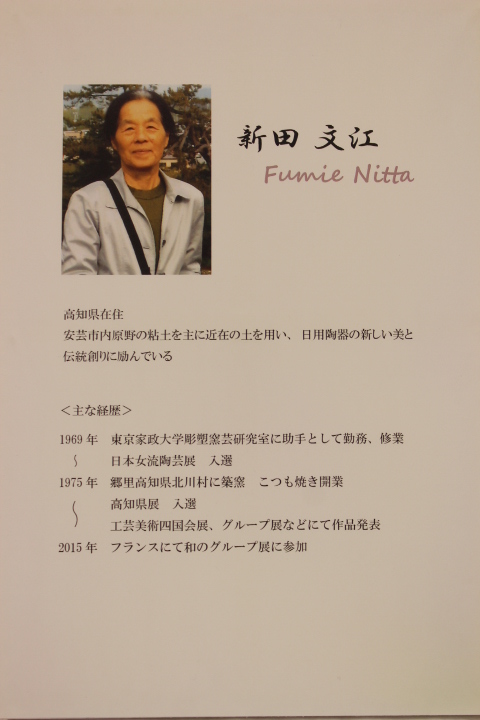 新田 文江
Fumie Nitta
高知県在住
安芸市内原野の粘土を主に近在の土を用い、日用陶器の新しい美と
伝統創りに励んでいる
＜主な経歴＞
1969年 東京家政大学彫塑窯芸研究室に助手として勤務、修業
〜 日本女流陶芸展 入選
1975年 郷里高知県北川村に築窯 こつも焼き開業
〜 高知県展 入選
工芸美術四国会展、グループ展などにて作品発表
2015年 フランスにて和のグループ展に参加